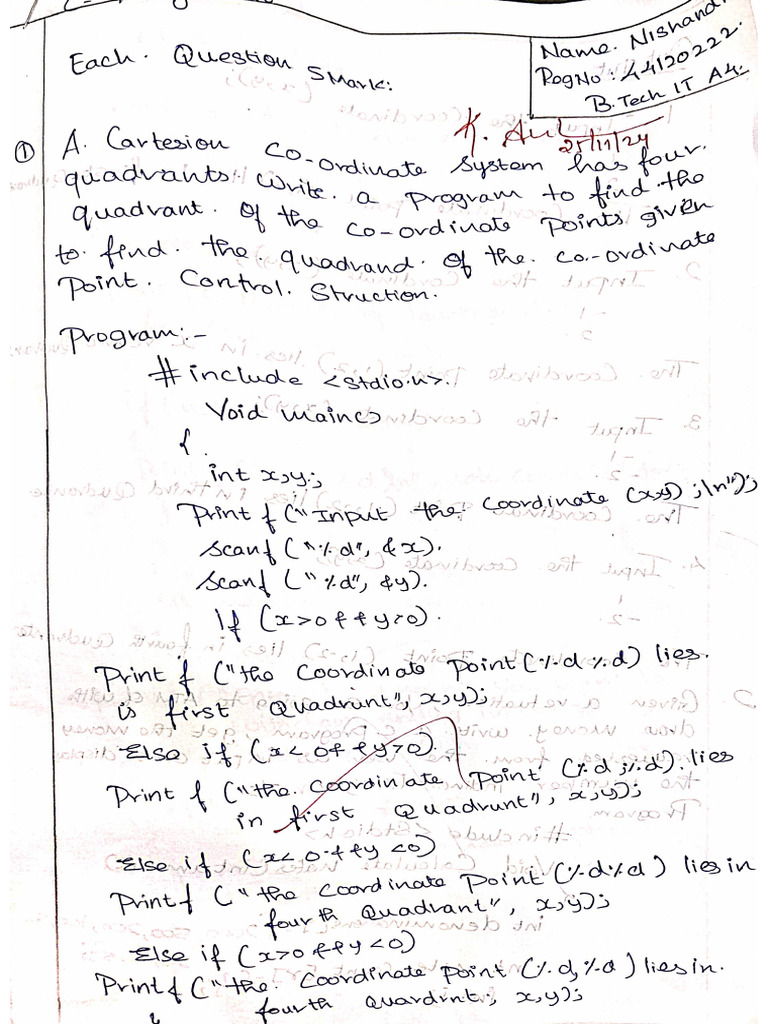 Each. Question 5 Mark:
Name. Nishandh
RegNo: 44120222.
B.Tech IT A4.
25/11/24
① A. Cartesion co-ordinate system has four.
quadrants. Write. a program to find the
quadrant. of the co-ordinate points given
to. find. the. quadrand. of the. co-ordinate
Point. Control. Struction.
Program:-
#include <stdio.h>.
Void main()
{
int x,y;
Print f ("Input the coordinate (x,y) ;\n");
Scanf ("%d", &x).
Scanf ("%d", &y).
If (x>0 && y>0).
Print f ("the coordinate point (%d %d) lies.
is first Quadrunt", x,y);
Else if (x<0 && y>0).
Print f ("the coordinate point (%d ;%d). lies
in first Quadrunt", x,y);
Else if (x<0 && y<0)
Printf ("the coordinate Point (%d%d) lies in
fourth Quadrant", x,y);
Else if (x>0 && y<0)
Print f ("the. Coordinate point (%d,%d) lies in.
fourth quardrnt; x,y);
}